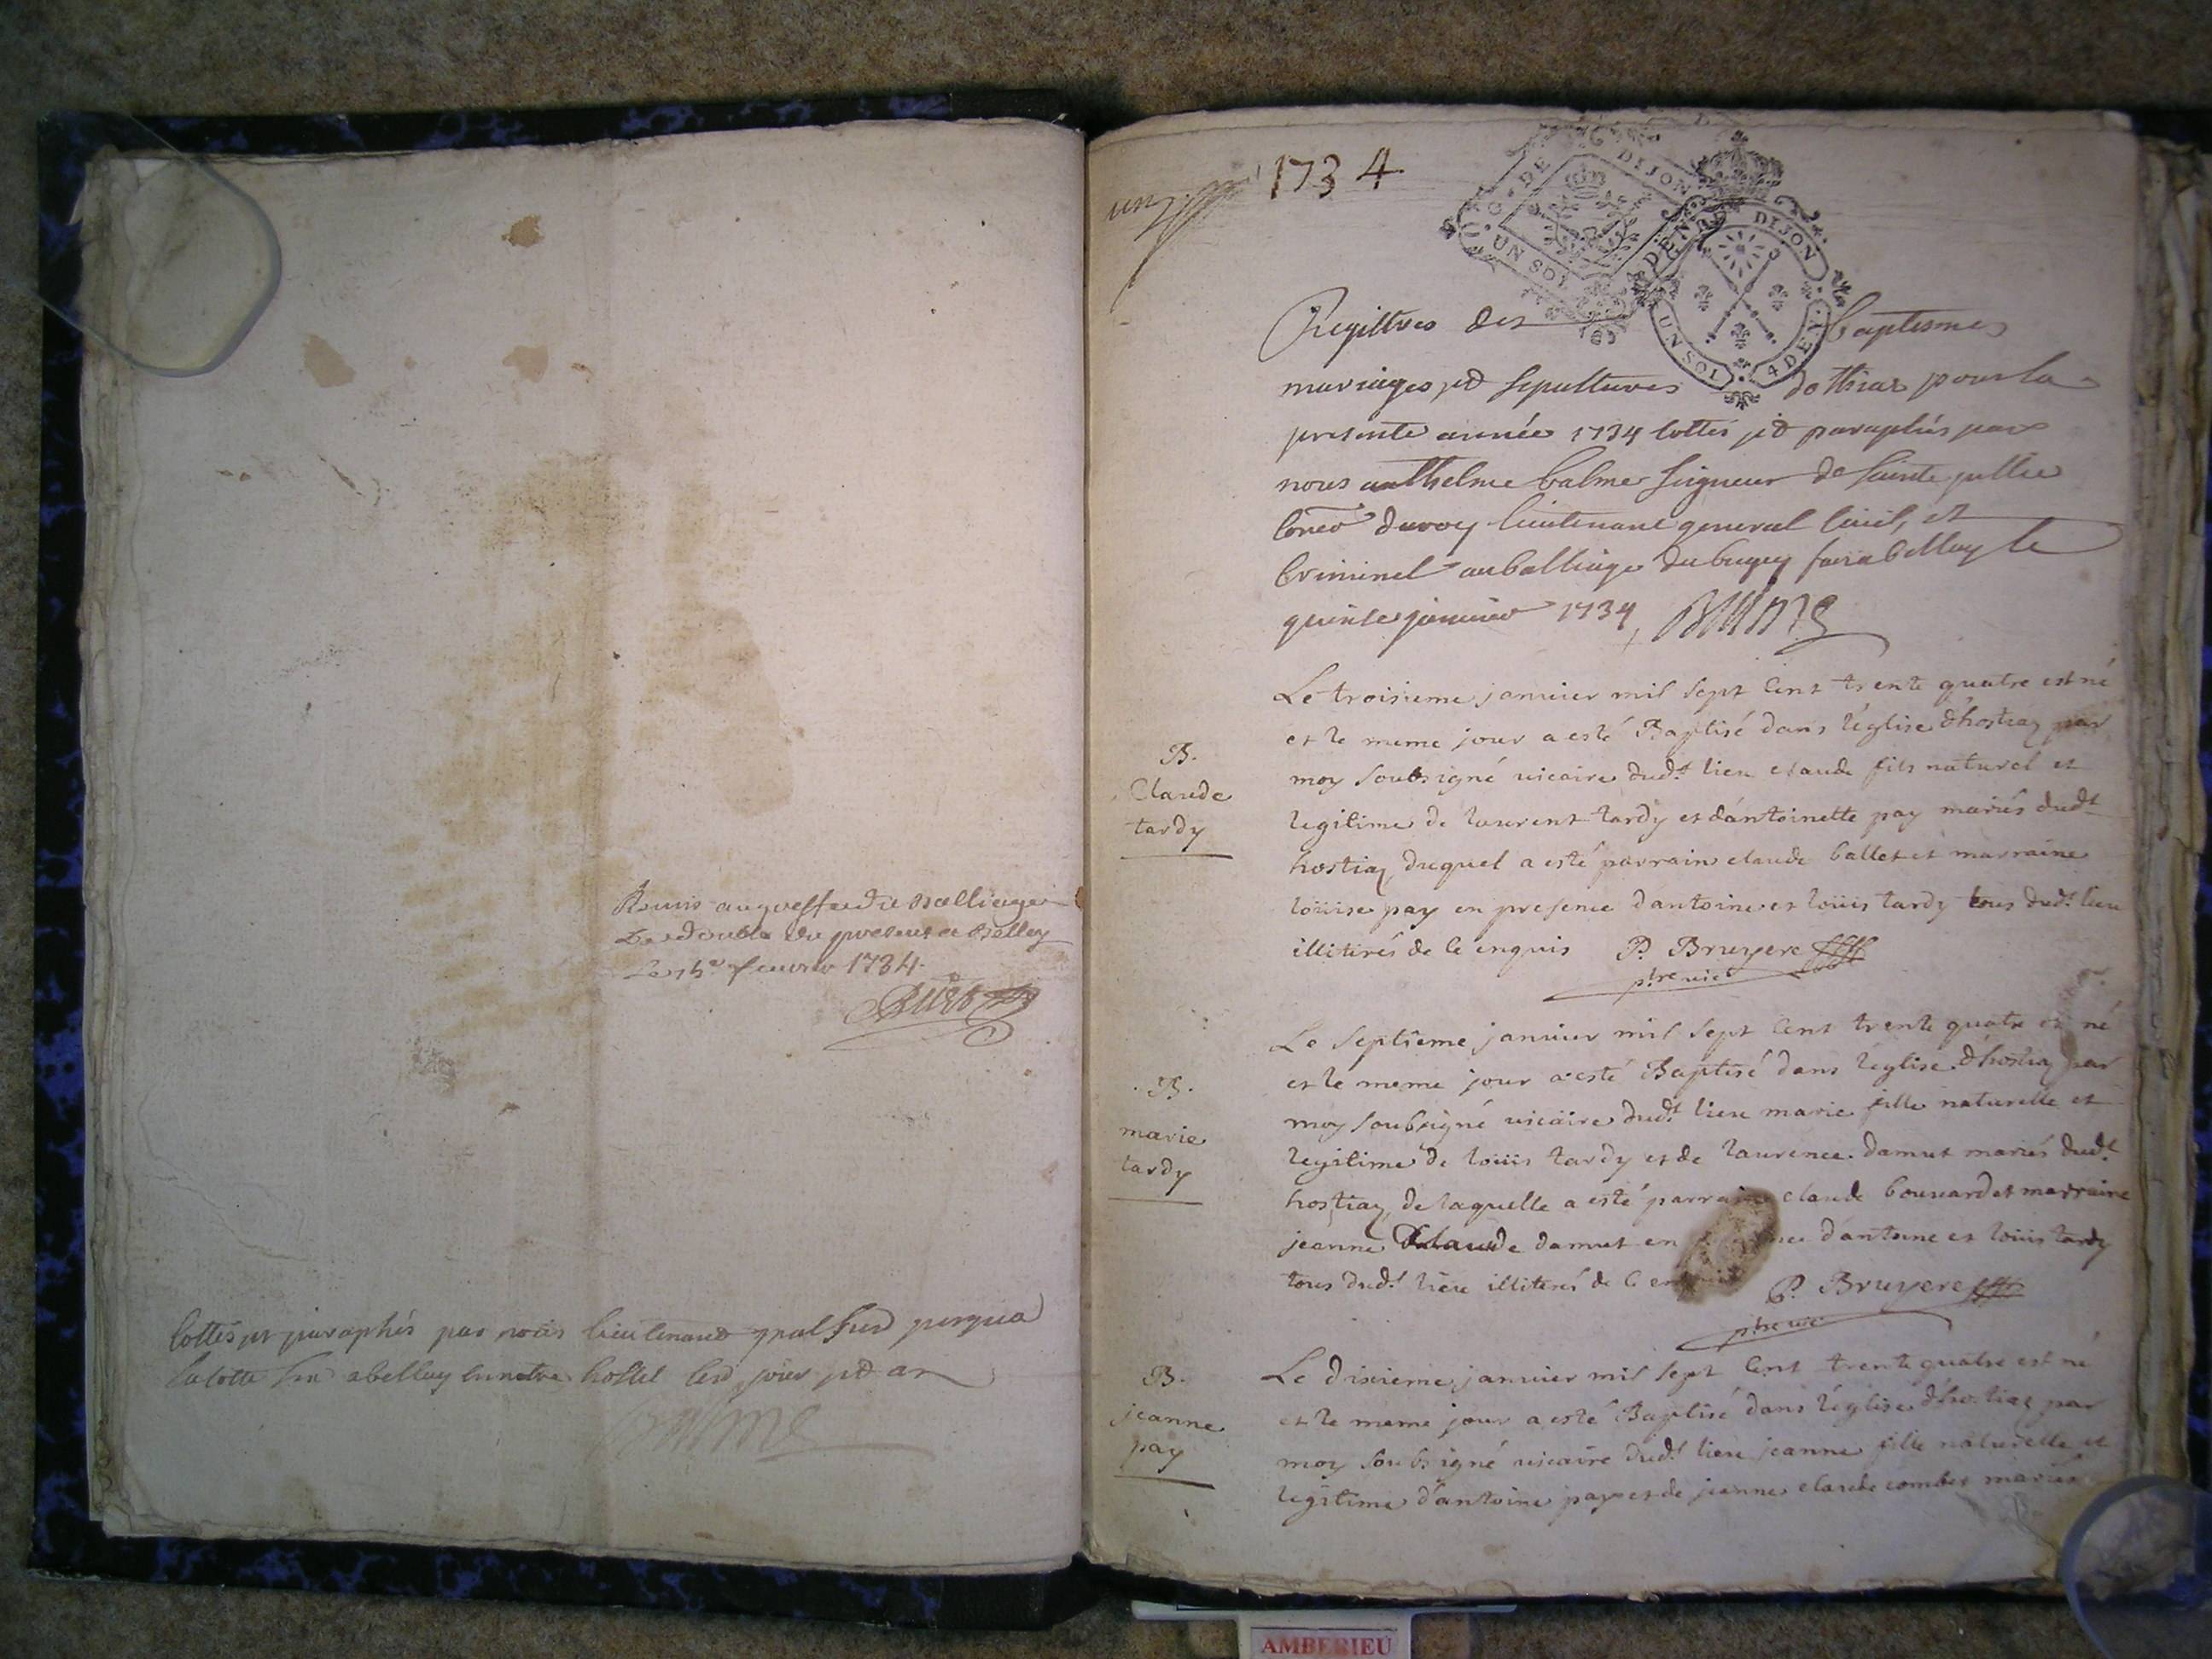 Remis au greffe du Balliage
Le double du present a Belley
Le 15e fevrier 1734.
Cottés et paraphés par nous lieutenant gnal susd
a belley en notre hostel lesd jour et an
Balme
un
1734.
G. DE DIJON
UN SOL
DIJON
UN SOL 4 DEN.
Registres des baptismes
mariages, et sepultures dothiaz pour la
presente année 1734 Cottés et paraphés par
nous anthelme balme seigneur de sainte jullie
Coner du roy lieutenant general Civil, et
Criminel au balliage du bugey fait a belley le
quinse janvier 1734 Balme
Le troisieme janvier mil sept Cent trente quatre est né
et le meme jour a esté Baptisé dans l'église d'hostiaz par
moy soubsigné vicaire dudt lieu claude fils naturel et
legitime de laurent tardy et d'antoinette pay mariés dudt
hostiaz, duquel a esté parrain claude ballet et marraine
loüise pay en presence d'antoine et loüis tardy tous dudt lieu
illiterés de ce enquis P. Bruyere
ptre vic
B.
Claude
tardy
Le septieme janvier mil sept Cent trente quatre est né
et le meme jour a esté Baptisé dans l'eglise d'hostiaz par
moy soubsigné vicaire dudt lieu marie fille naturelle et
legitime de loüis tardy et de laurence damut mariés dudt
hostiaz, de laquelle a esté parraine claude bouvard et marraine
jeanne Claude damut en d'antoine et loüis tardy
tous dudt lieu illiterés de ce P. Bruyere
ptre vic
B.
marie
tardy
Le dixieme janvier mil sept Cent trente quatre est né
et le meme jour a esté Baptisé dans l'église d'hostiaz par
moy soubsigné vicaire dudt lieu jeanne fille naturelle et
legitime d'antoine pay et de jeanne claude combet mariés
B.
jeanne
pay
AMBERIEU